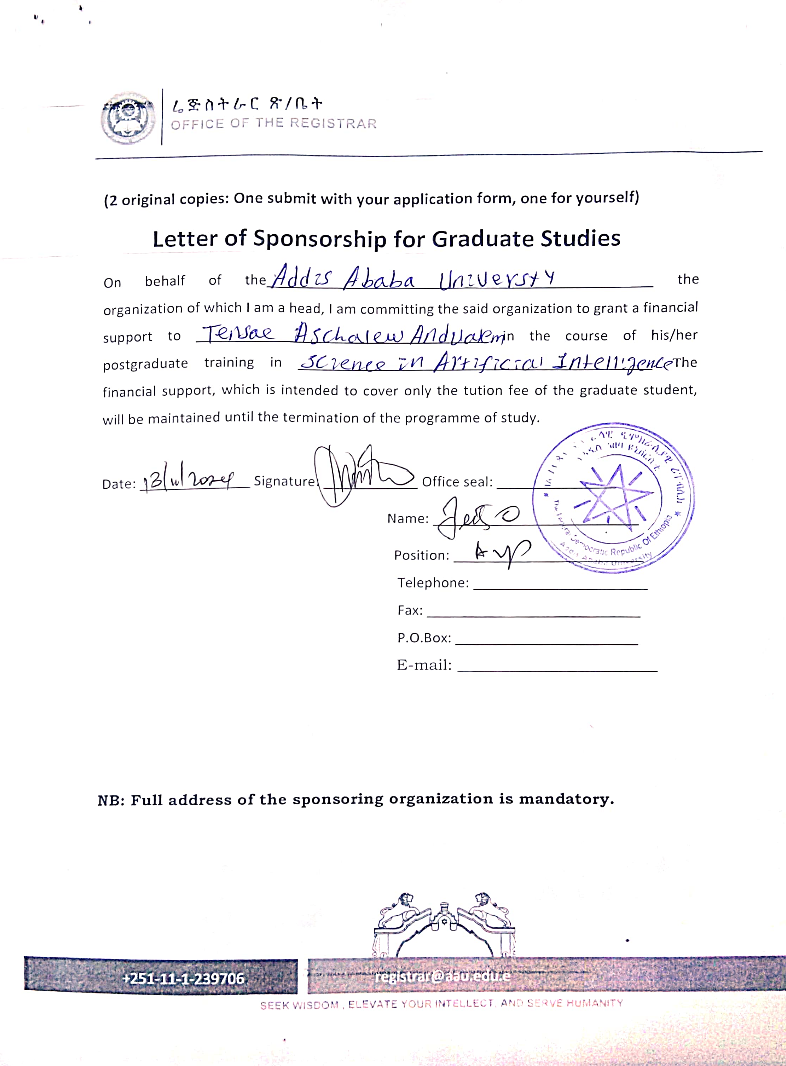 ሬጅስትራር ጽ/ቤት
OFFICE OF THE REGISTRAR
(2 original copies: One submit with your application form, one for yourself)
Letter of Sponsorship for Graduate Studies
On behalf of the Addis Ababa University the
organization of which I am a head, I am committing the said organization to grant a financial
support to Aschalew in the course of his/her
postgraduate training in Science in Artificial Intelligence The
financial support, which is intended to cover only the tution fee of the graduate student,
will be maintained until the termination of the programme of study.
Date: 13/11/2024 Signature: Office seal:
Name:
Position:
The Federal Democratic Republic Of Ethiopia
Addis Ababa University
Telephone:
Fax:
P.O.Box:
E-mail:
NB: Full address of the sponsoring organization is mandatory.
+251-11-1-239706 registrar@aau.edu.e
SEEK WISDOM, ELEVATE YOUR INTELLECT, AND SERVE HUMANITY